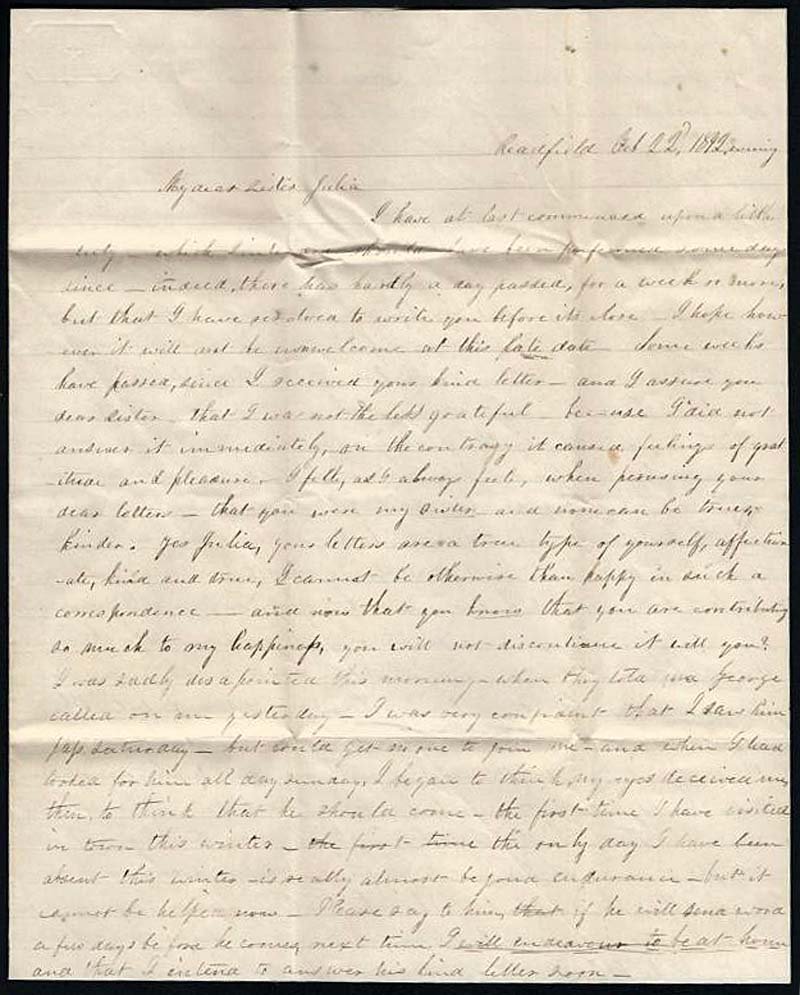 Readfield Feb 22d, 1842, evening
My dear sister Julia
I have at last commenced upon a little
duty – which should have been performed some days
since – indeed, there has hardly a day passed, for a week or more,
but that I have resolved to write you before its close – I hope how
ever it will not be unwelcome at this late date – Some weeks
have passed, since I received your kind letter – and I assure you
dear sister that I was not the less grateful – because I did not
answer it immediately, on the contrary it caused feelings of grat
itude and pleasure – I felt, as I always feel, when perusing your
dear letters – that you were my sister and none can be truer,
kinder. Yes Julia, your letters are a true type of yourself, affection
-ate, kind and true, I cannot be otherwise than happy in such a
correspondence – and now that you know that you are contributing
so much to my happiness, you will not discontinue it will you?
I was sadly disapointed this morning – when they told me George
called on me yesterday – I was very confident that I saw him
pass saturday – but could get no one to join me – and when I had
looked for him all day sunday, I began to think, my eyes deceived me,
then, to think that he should come – the first time I have visited
in town this winter – the first time the only day I have been
absent this winter – is really almost beyond endurance – but it
cannot be helped now – Please say to him, that if he will send word
a few days before he comes, next time, I will endeavour to be at home
and that I intend to answer his kind letter soon –